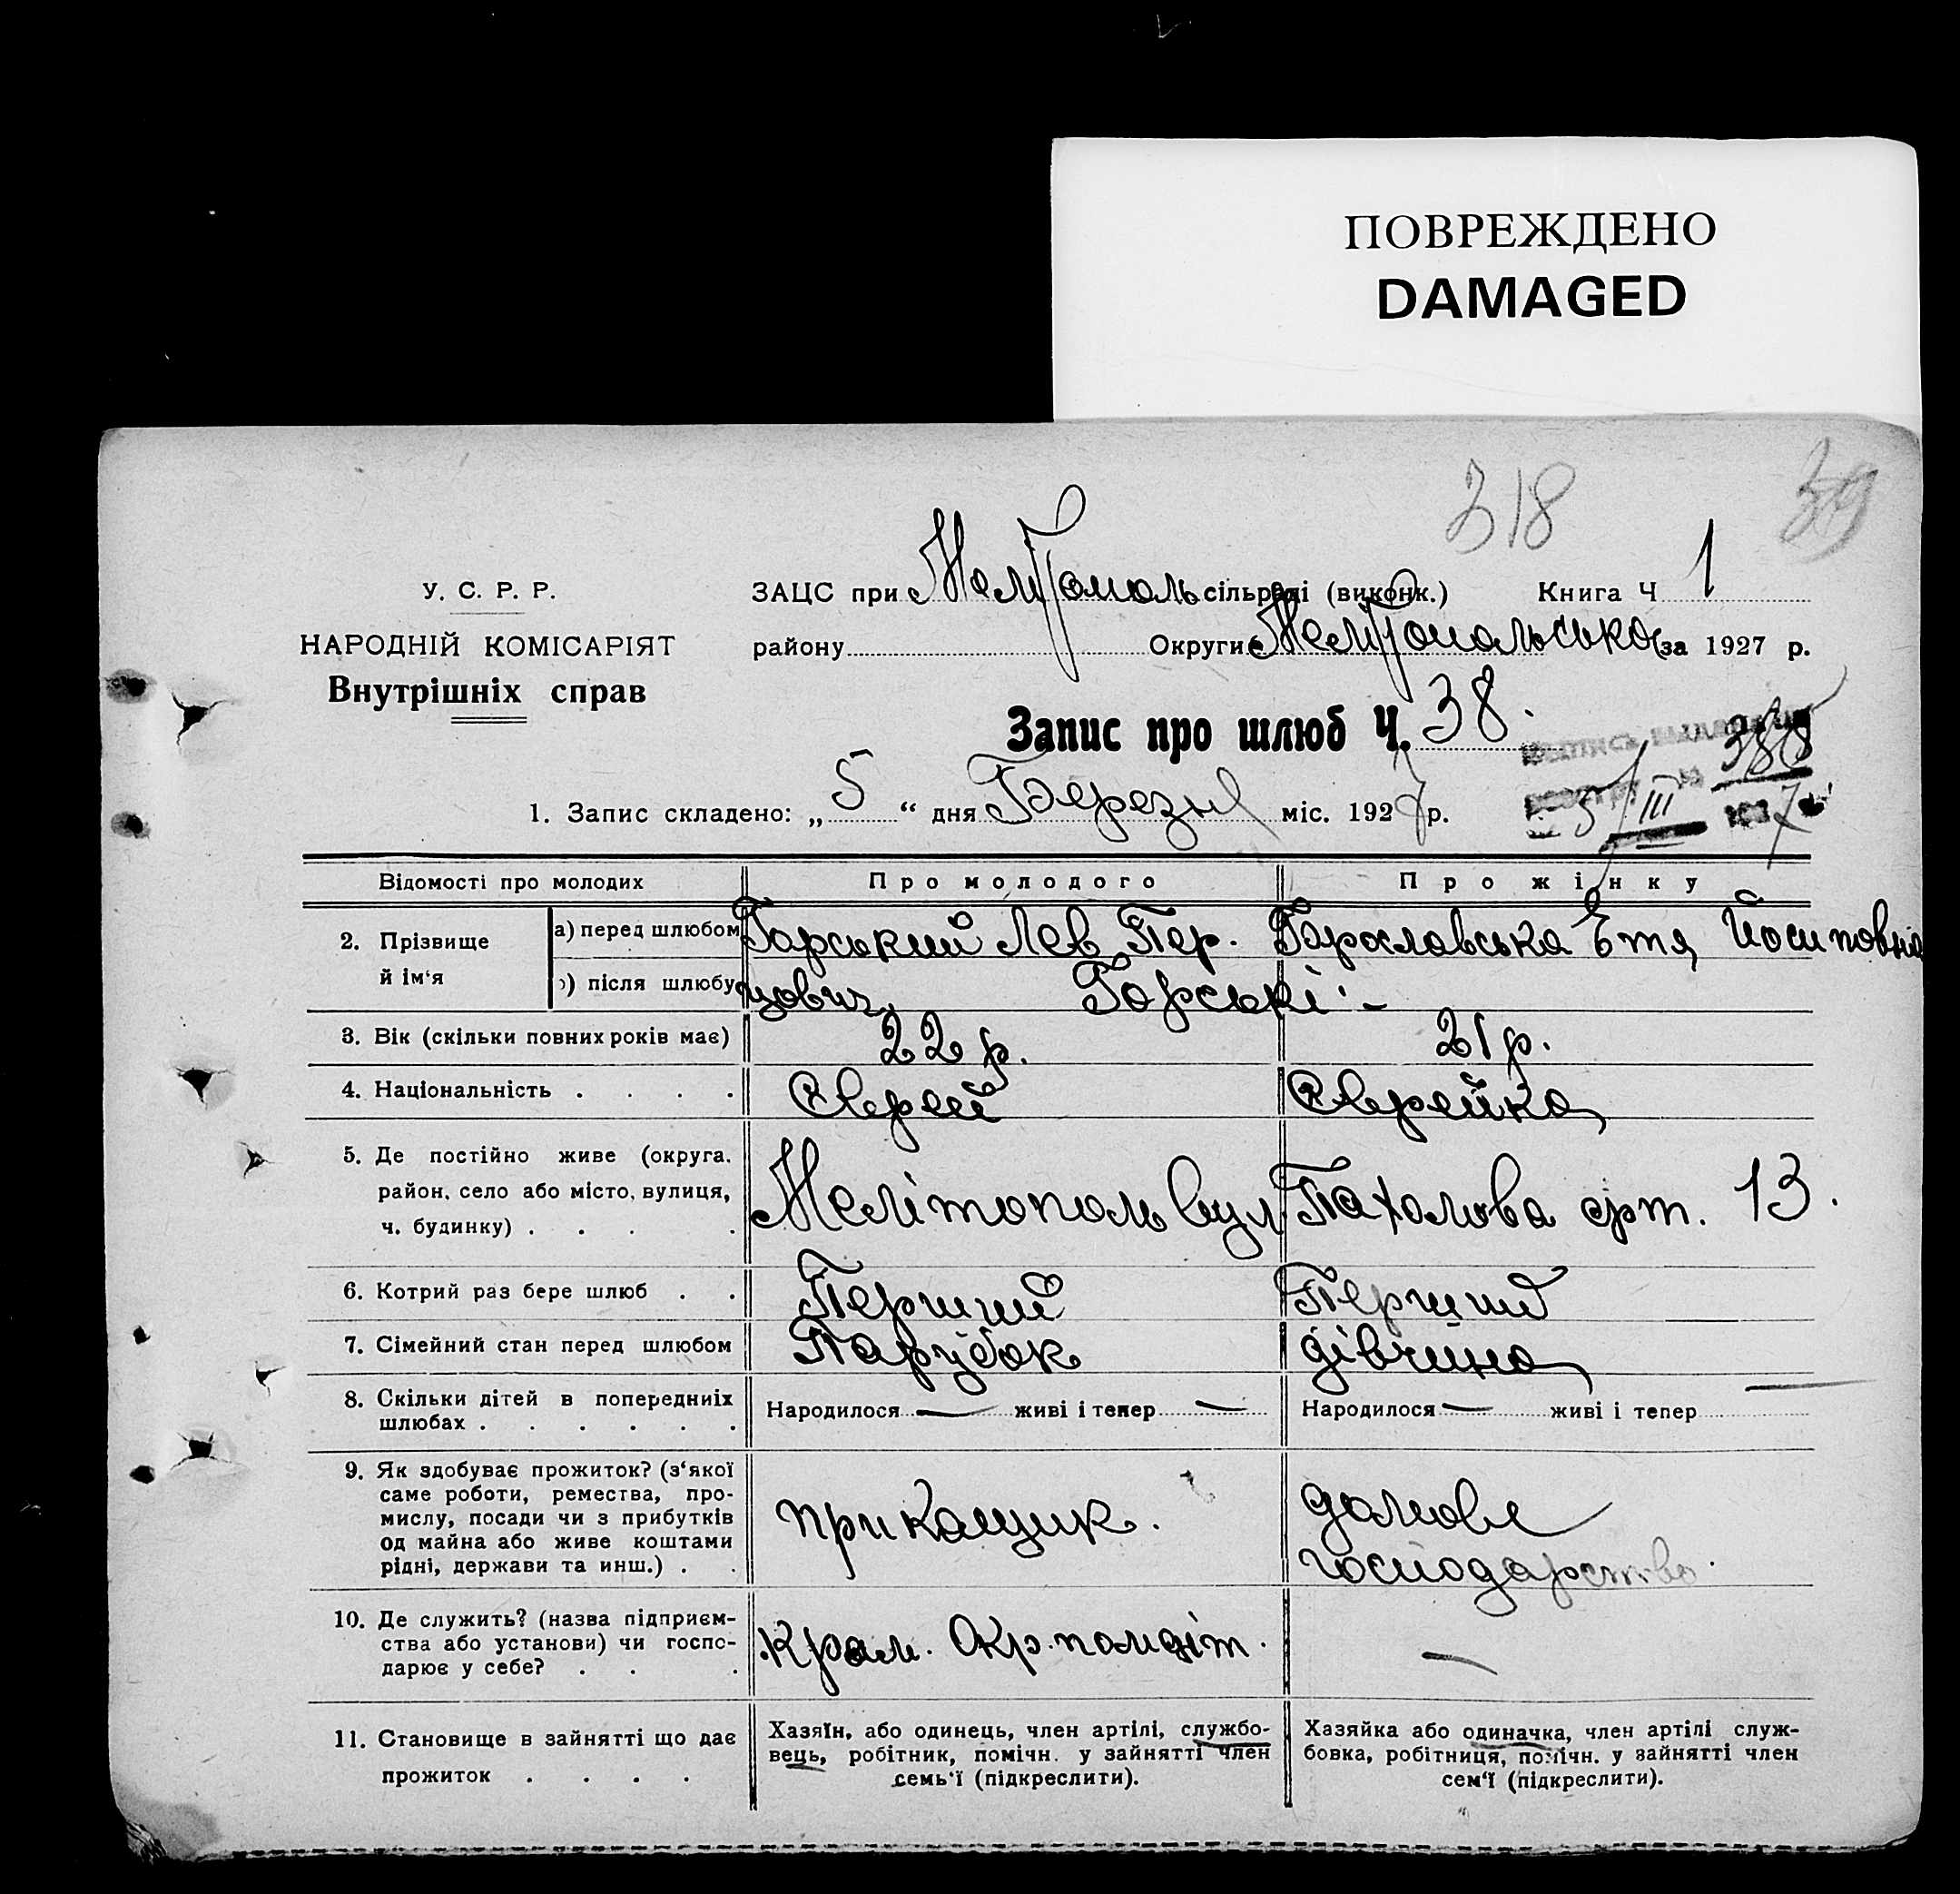 ПОВРЕЖДЕНО
DAMAGED
318 39
У. С. Р. Р.
НАРОДНІЙ КОМІСАРІЯТ
Внутрішніх справ
ЗАЦС при Мелітополь сільраді (виконк.) Книга Ч 1
району Округи Мелітопольська за 1927 р.
Запис про шлюб Ч. 38.
388
5/III 1927
1. Запис складено: „ 5 “ дня Березня міс. 1927 р.
Відомості про молодих Про молодого Про жінку
2. Прізвище й ім‘я
а) перед шлюбом Горський Лев Пер. цович Ета Йосиповна
) після шлюбу Горські -
3. Вік (скільки повних років має) 22 р. 21 р.
4. Національність . . . . Єврей Єврейка
5. Де постійно живе (округа.
район. село або місто, вулиця,
ч. будинку) . . . . Мелітополь вул. 13.
6. Котрий раз бере шлюб . . Перший Перший
7. Сімейний стан перед шлюбом Парубок дівчина
8. Скільки дітей в попередниіх
шлюбах . . . . . . Народилося — живі і тепер — Народилося — живі і тепер
9. Як здобуває прожиток? (з‘якої
саме роботи, ремества, про-
мислу, посади чи з прибутків
од майна або живе коштами
рідні, держави та инш.) . . прикащик. домове
господарство.
10. Де служить? (назва підприєм-
ства або установи) чи госпо-
дарює у себе? . . . Крам. Окр. помдіт. —
11. Становище в зайнятті що дає
прожиток . . . .
Хазяїн, або одинець, член артілі, службо-
вець, робітник, помічн. у зайнятті член
семь‘ї (підкреслити).
Хазяйка або одиначка, член артілі служ-
бовка, робітниця, помічн. у зайнятті член
сем‘ї (підкреслити).